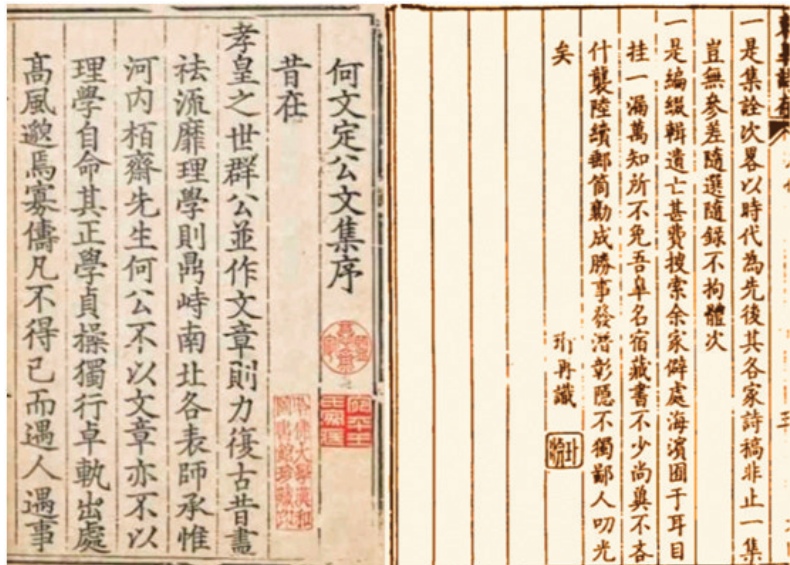 一是集詮次畧以時代為先後其各家詩稿非止一集
豈無參差隨選隨錄不拘體次
一是編綴輯遺亡甚費搜索余家僻處海濱囿于耳目
挂一漏萬知所不免吾皐名宿藏書不少尚冀不吝
什襲陸續郵筒勷成勝事發潛彰隱不獨鄙人叨光
矣
再識
何文定公文集序
昔在
孝皇之世群公並作文章則力復古昔盡
祛流靡理學則鼎峙南北各表師承惟
河内栢齋先生何公不以文章亦不以
理學自命其正學貞操獨行卓軌出處
高風邈焉寡儔凡不得已而遇人遇事